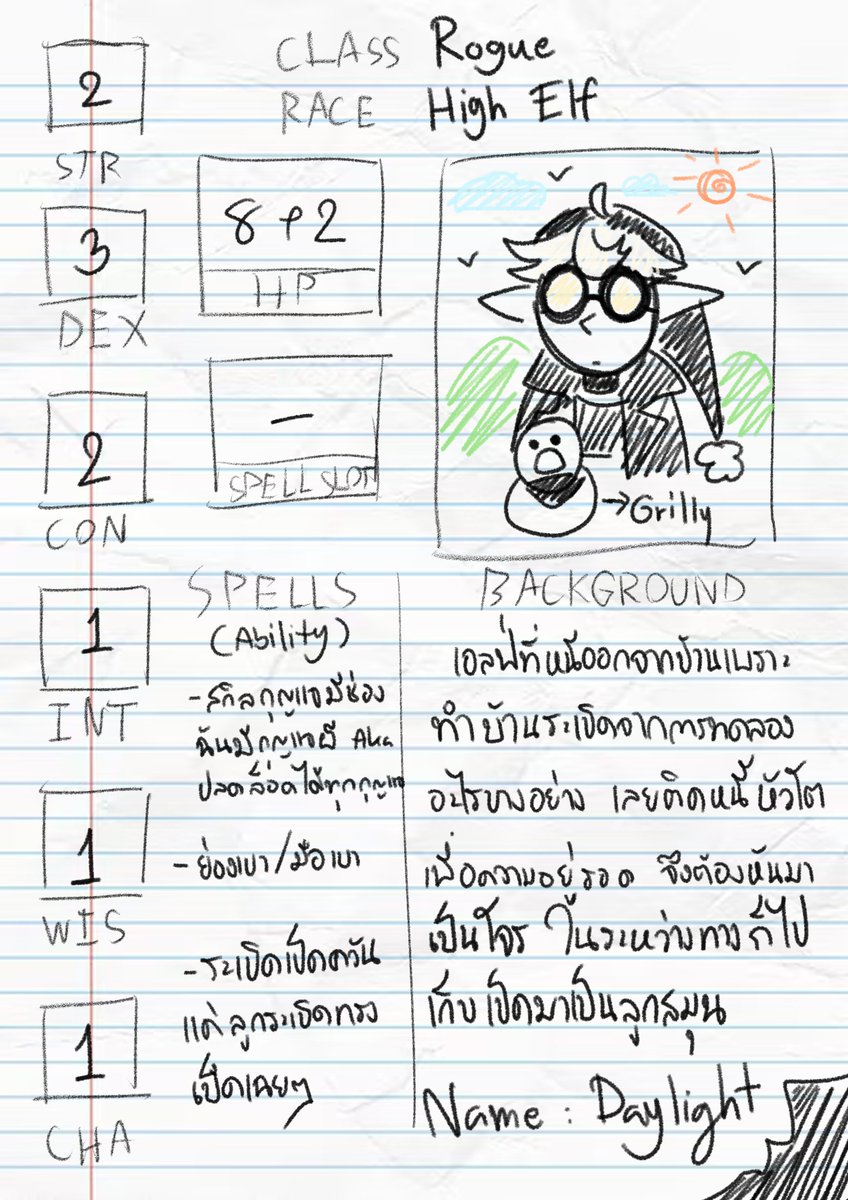 CLASS Rogue
RACE High Elf
2
STR
3
DEX
2
CON
1
INT
1
WIS
1
CHA
8+2
HP
-
SPELL SLOT
→Grilly
SPELLS
(Ability)
-สกิลกุญแจมีช่อง
ฉันมีกุญแจผี Aka
ปลดล็อคได้ทุกกุญแจ
-ย่องเบา/มือเบา
-ระเบิดเป็ดควัน
แค่ลูกระเบิดทรง
เป็ดเฉยๆ
BACKGROUND
เอลฟ์ที่หนีออกจากบ้านเพราะ
ทำบ้านระเบิดจากการทดลอง
อะไรบางอย่าง เลยติดหนี้หัวโต
เพื่อความอยู่รอด จึงต้องหันมา
เป็นโจร ในระหว่างทางก็ไป
เก็บเป็ดมาเป็นลูกสมุน
Name : Daylight